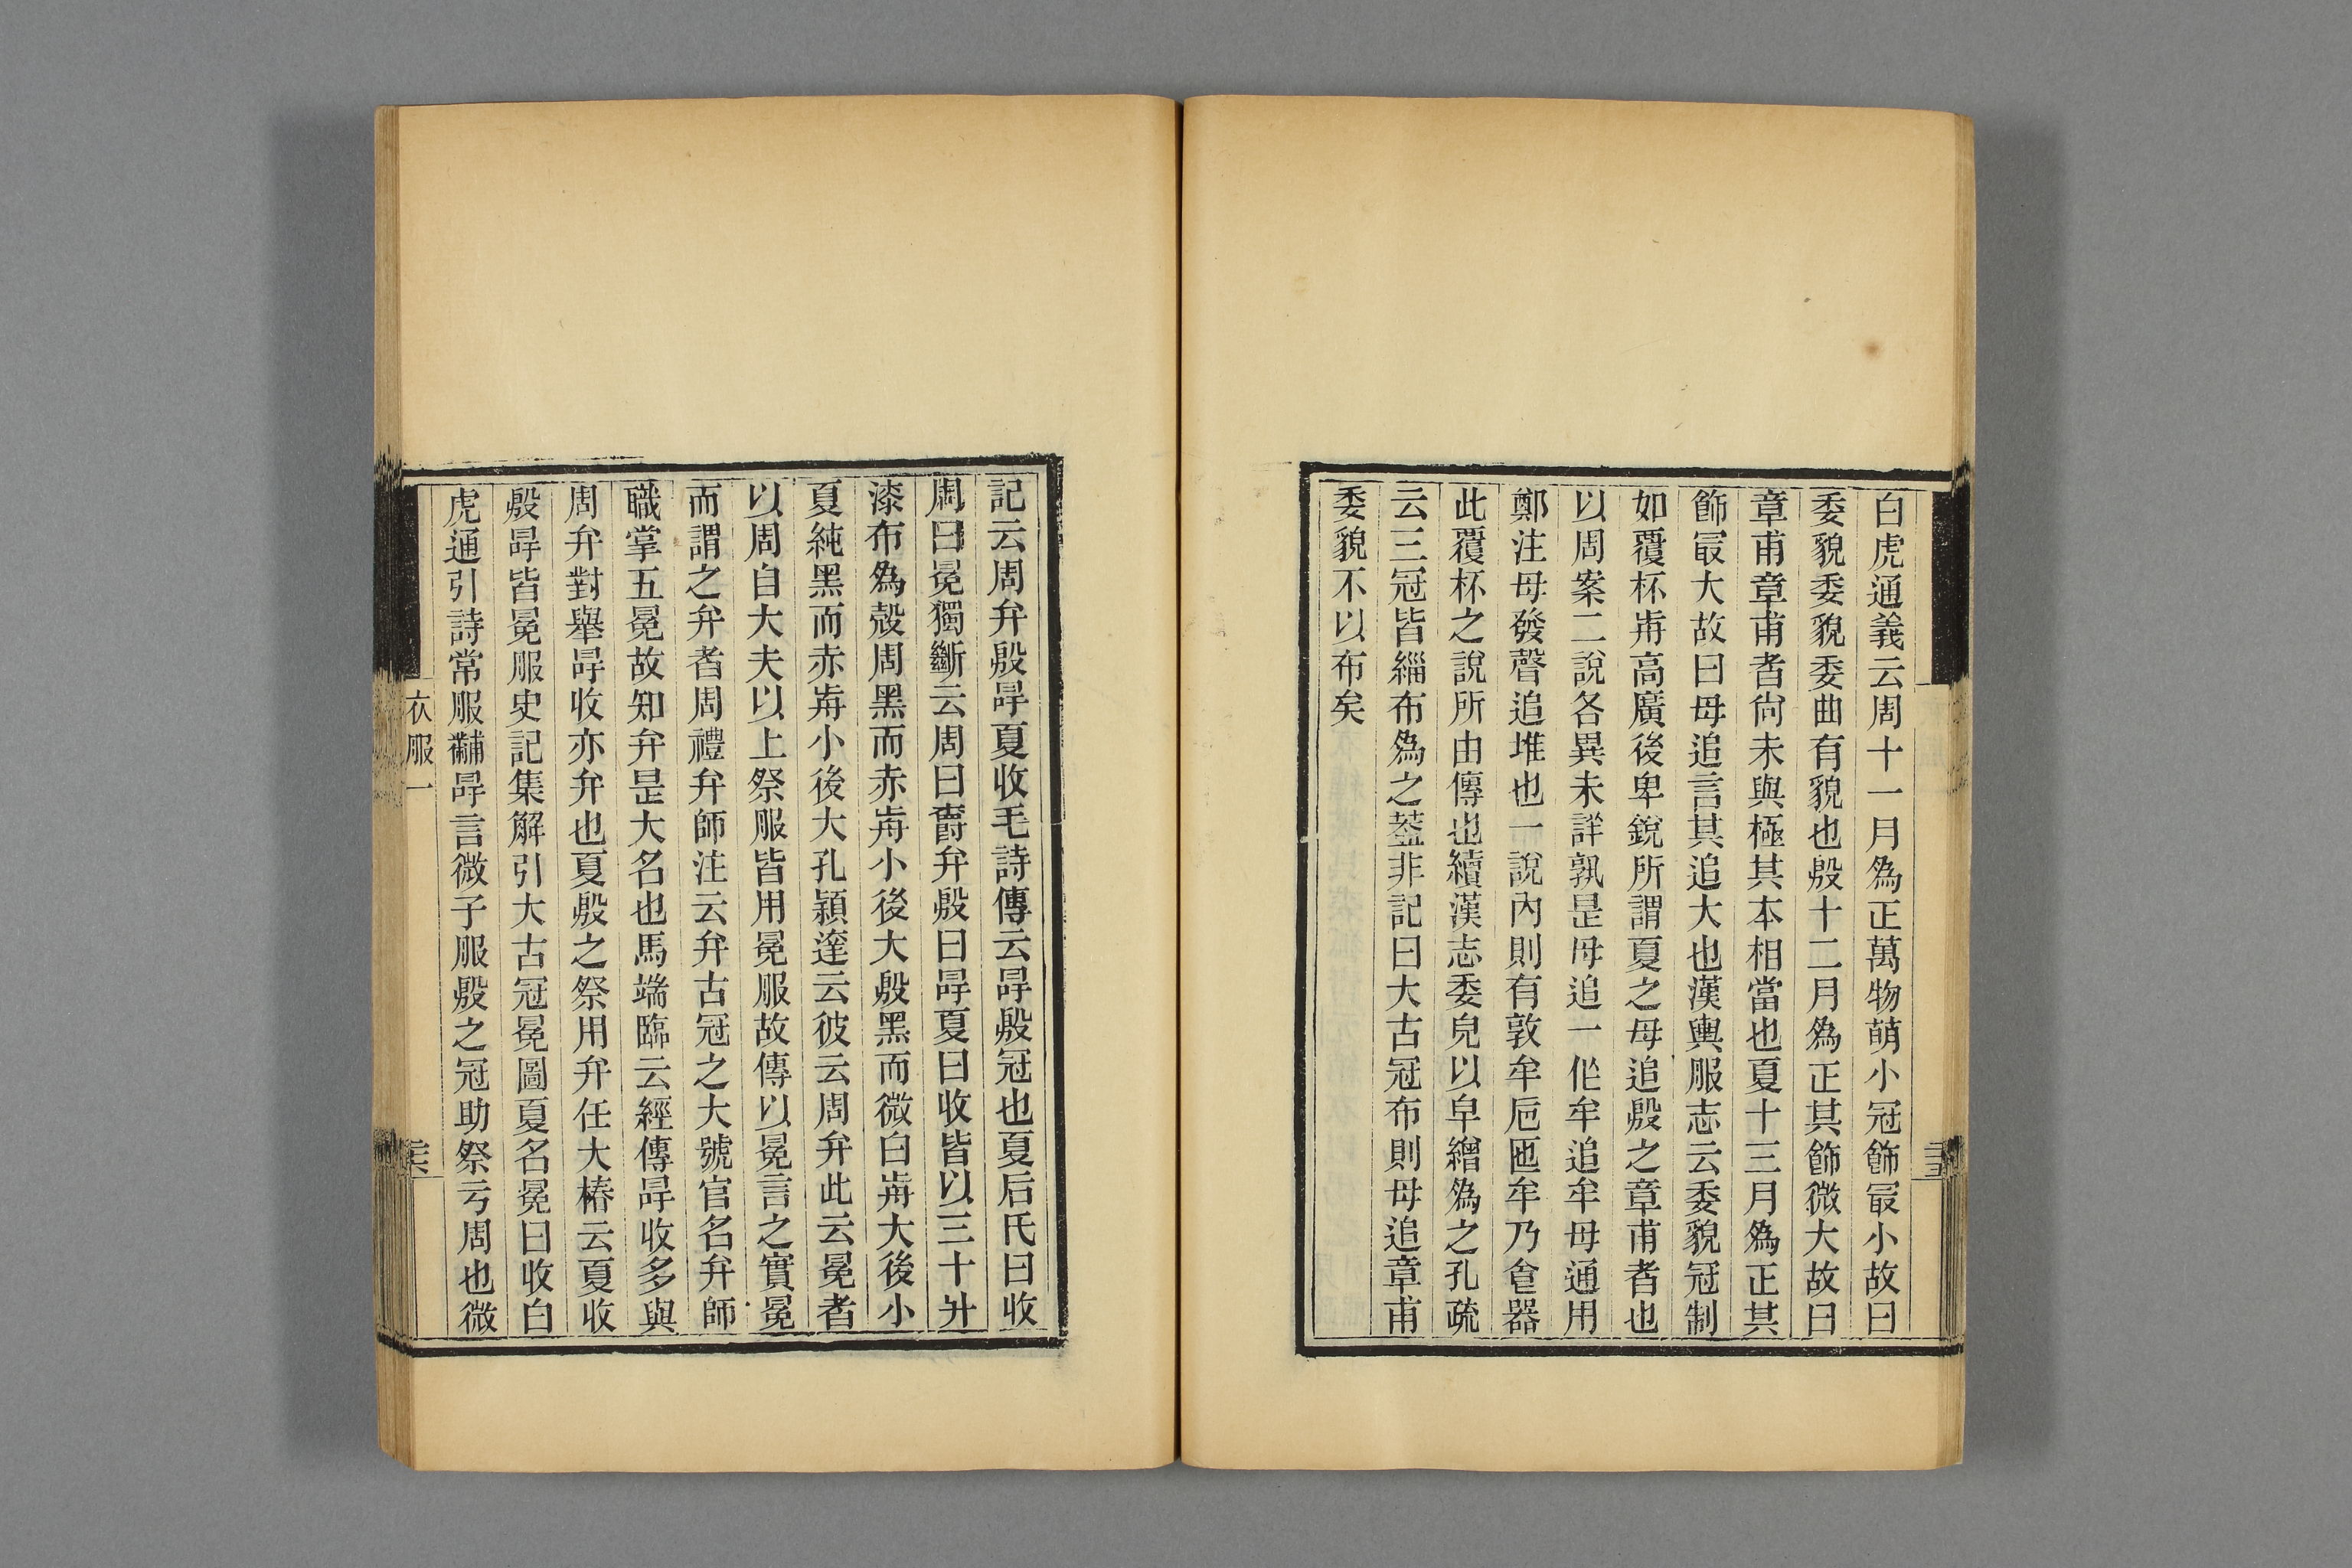 白虎通義云周十一月爲正萬物萌小冠飾冣小故曰
委貌委貌委曲有貌也殷十二月爲正其飾微大故曰
章甫章甫者尙未與極其本相當也夏十三月爲正其
飾冣大故曰毋追言其追大也漢輿服志云委貌冠制
如覆杯歬高廣後卑銳所謂夏之毋追殷之章甫者也
以周案二說各異未詳孰是毋追一作牟追牟毋通用
鄭注毋發聲追堆也一說內則有敦牟卮匜牟乃食器
此覆杯之說所由傳也續漢志委皃以皁繒爲之孔疏
云三冠皆緇布爲之葢非記曰大古冠布則毋追章甫
委貌不以布矣
記云周弁殷冔夏收毛詩傳云冔殷冠也夏后氏曰收
周曰冕獨斷云周曰爵弁殷曰冔夏曰收皆以三十升
漆布爲殼周黑而赤歬小後大殷黑而微白歬大後小
夏純黑而赤歬小後大孔穎達云彼云周弁此云冕者
以周自大夫以上祭服皆用冕服故傳以冕言之實冕
而謂之弁者周禮弁師注云弁古冠之大號官名弁師
職掌五冕故知弁是大名也馬端臨云經傳冔收多與
周弁對舉冔收亦弁也夏殷之祭用弁任大椿云夏收
殷冔皆冕服史記集解引大古冠冕圖夏名冕曰收白
虎通引詩常服黼冔言微子服殷之冠助祭亏周也微
衣服一